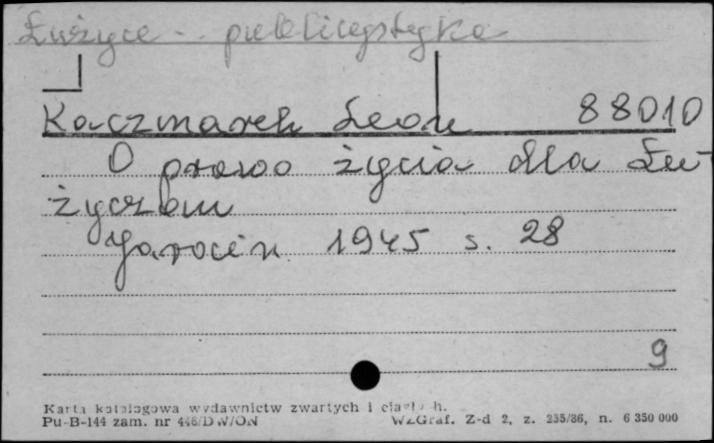 Łużyce - publicystyka
Kaczmarek Leon 88010
O prawo życia dla Łu-
życzan
Jarocin 1945 s. 28
9
Karta katalogowa wydawnictw zwartych i ciągłych.
Pu-B-144 zam. nr 446/DW/ON WZGraf. Z-d 2, z. 255/86, n. 6 350 000